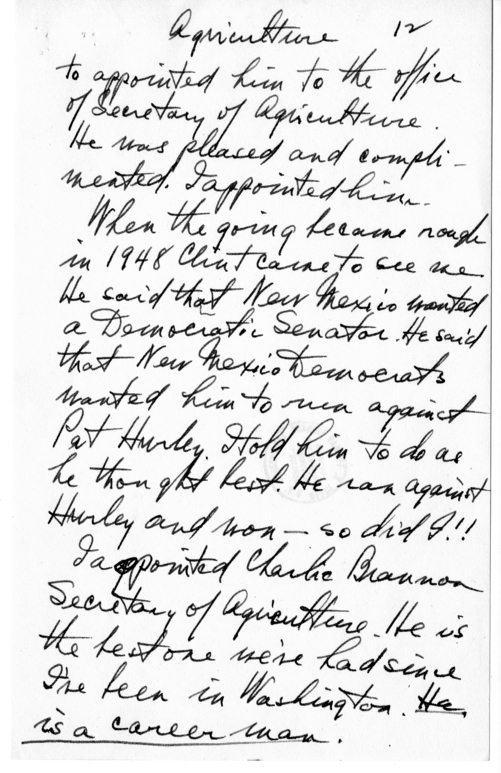 Agriculture 12
to appointed him to the office
of Secretary of Agriculture.
He was pleased and compli-
mented. I appointed him.
When the going became rough
in 1948 Clint came to see me.
He said that New Mexico wanted
a Democratic Senator. He said
that New Mexico Democrats
wanted him to run against
Pat Hurley. I told him to do as
he thought best. He ran against
Hurley and won - so did I!!
I appointed Charlie Brannon
Secretary of Agriculture. He is
the best one we've had since
I've been in Washington. He
is a career man.